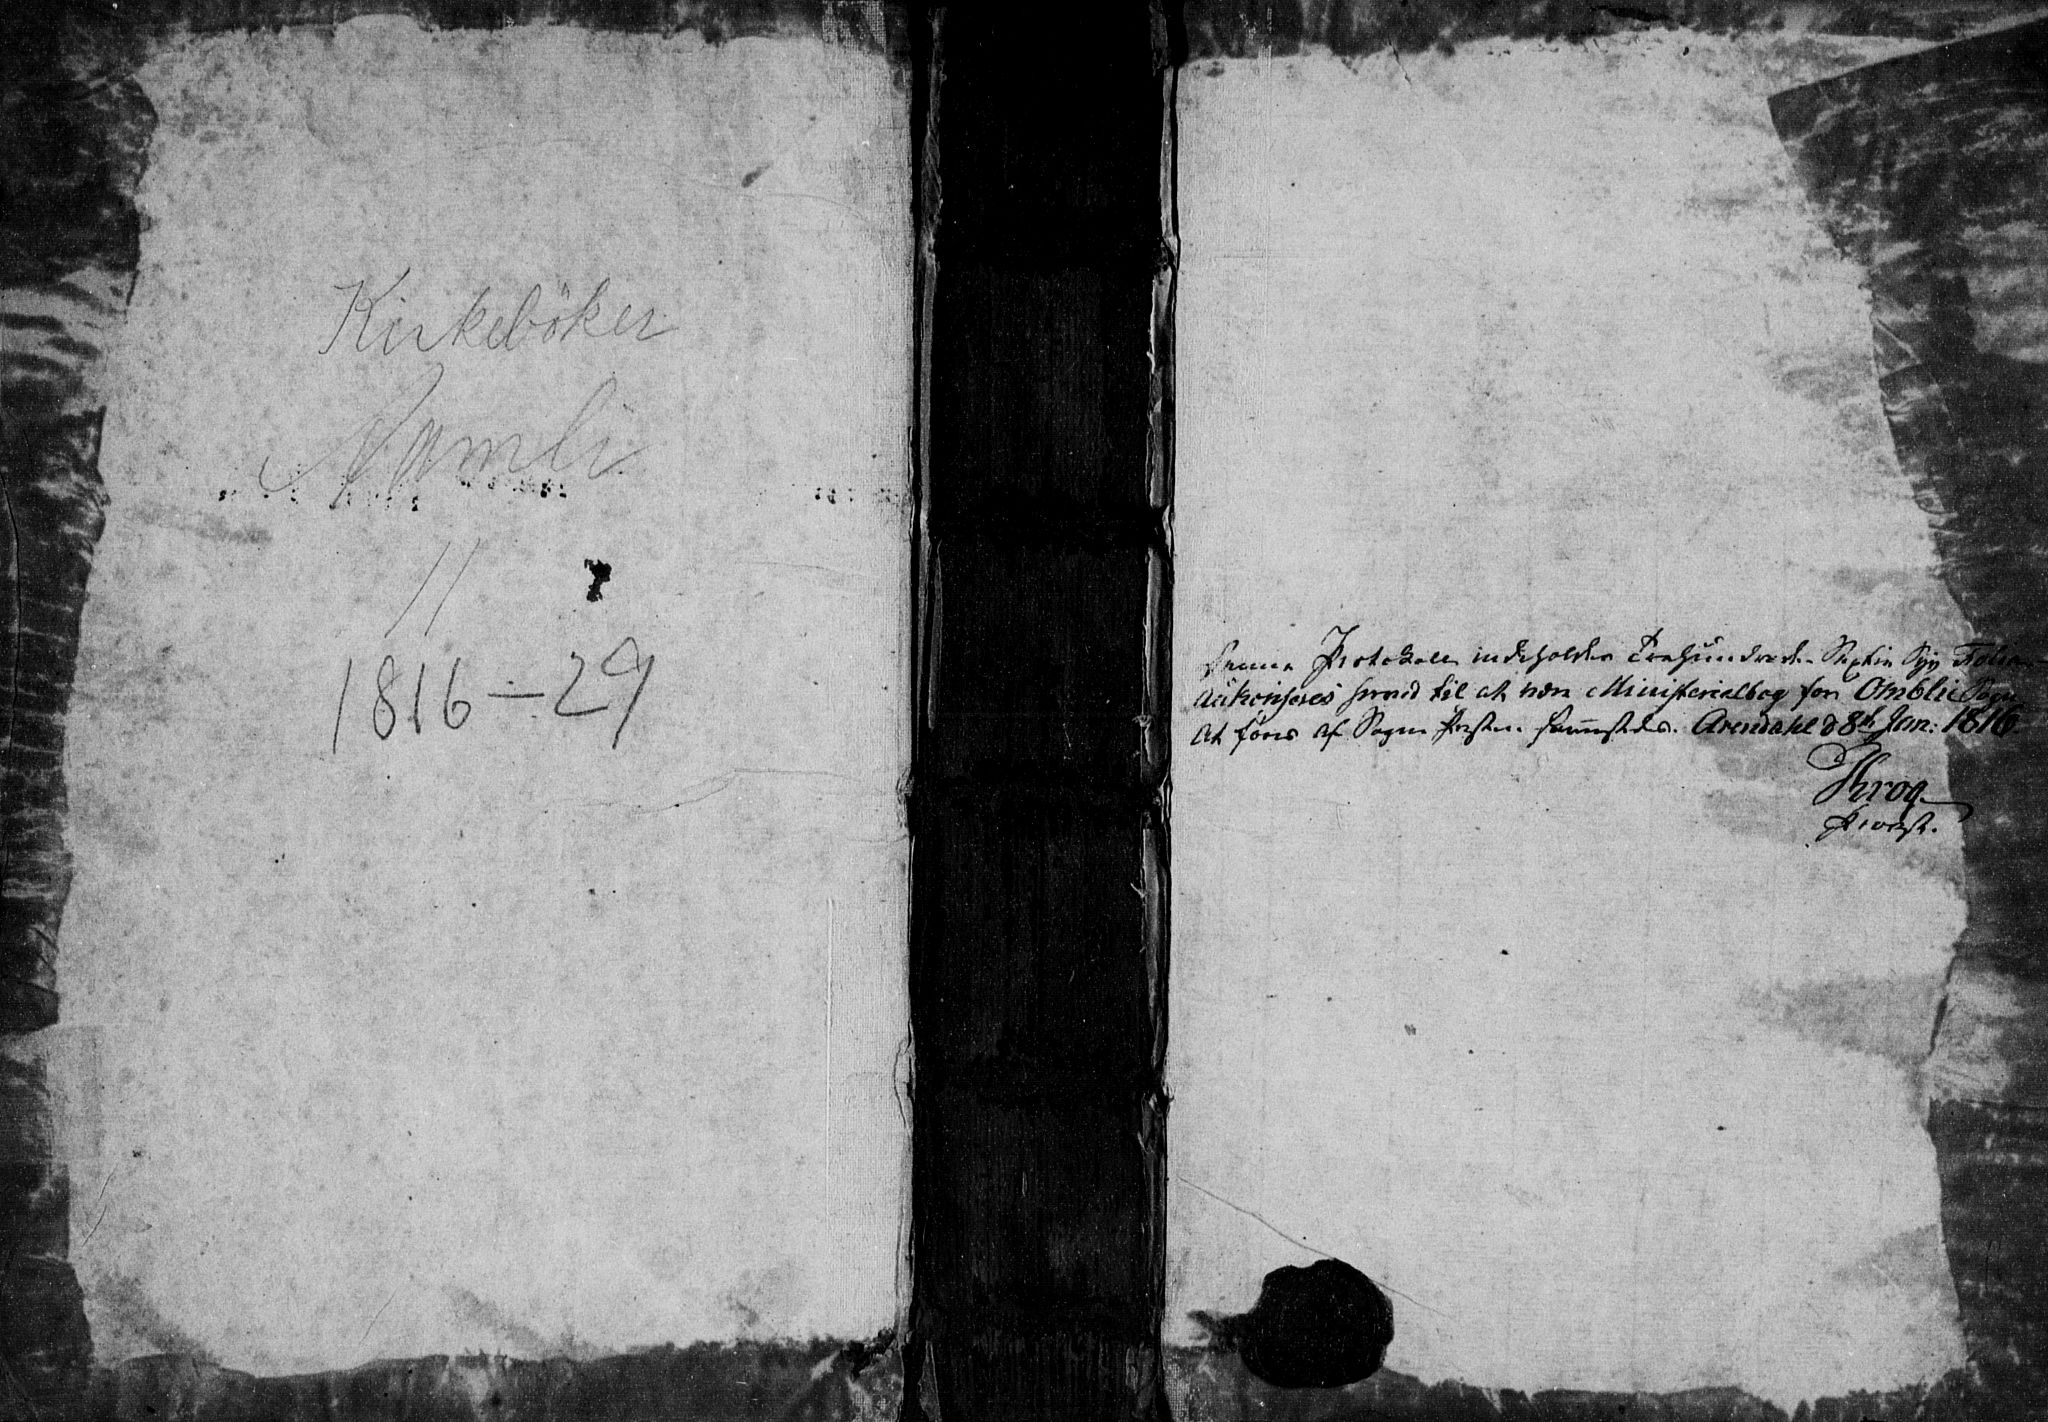 Kirkeböker
Aamli
11
1816-29
Denne Protokoll indeholder Trehundrede Sextie Syv Folier
autoriseres herved til at være Ministerialbog for Omblie Sogn
at føres af Sogne Præsten sammestedes. Arendahl d 8de Jan: 1816
Krog
Provst.